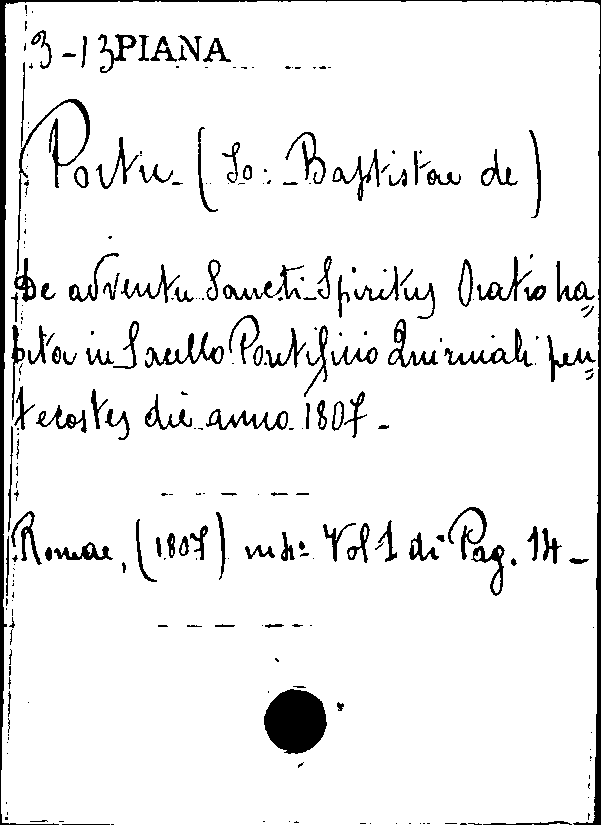 3-13 PIANA
Portu (Io: Baptistae de)
De adventu Sancti Spiritus Oratio ha=
bita in Sacello Pontificio Quirinali pen=
tecostes die anno 1807-
Romae, (1807) in 4º Vol 1 di Pag. 14-